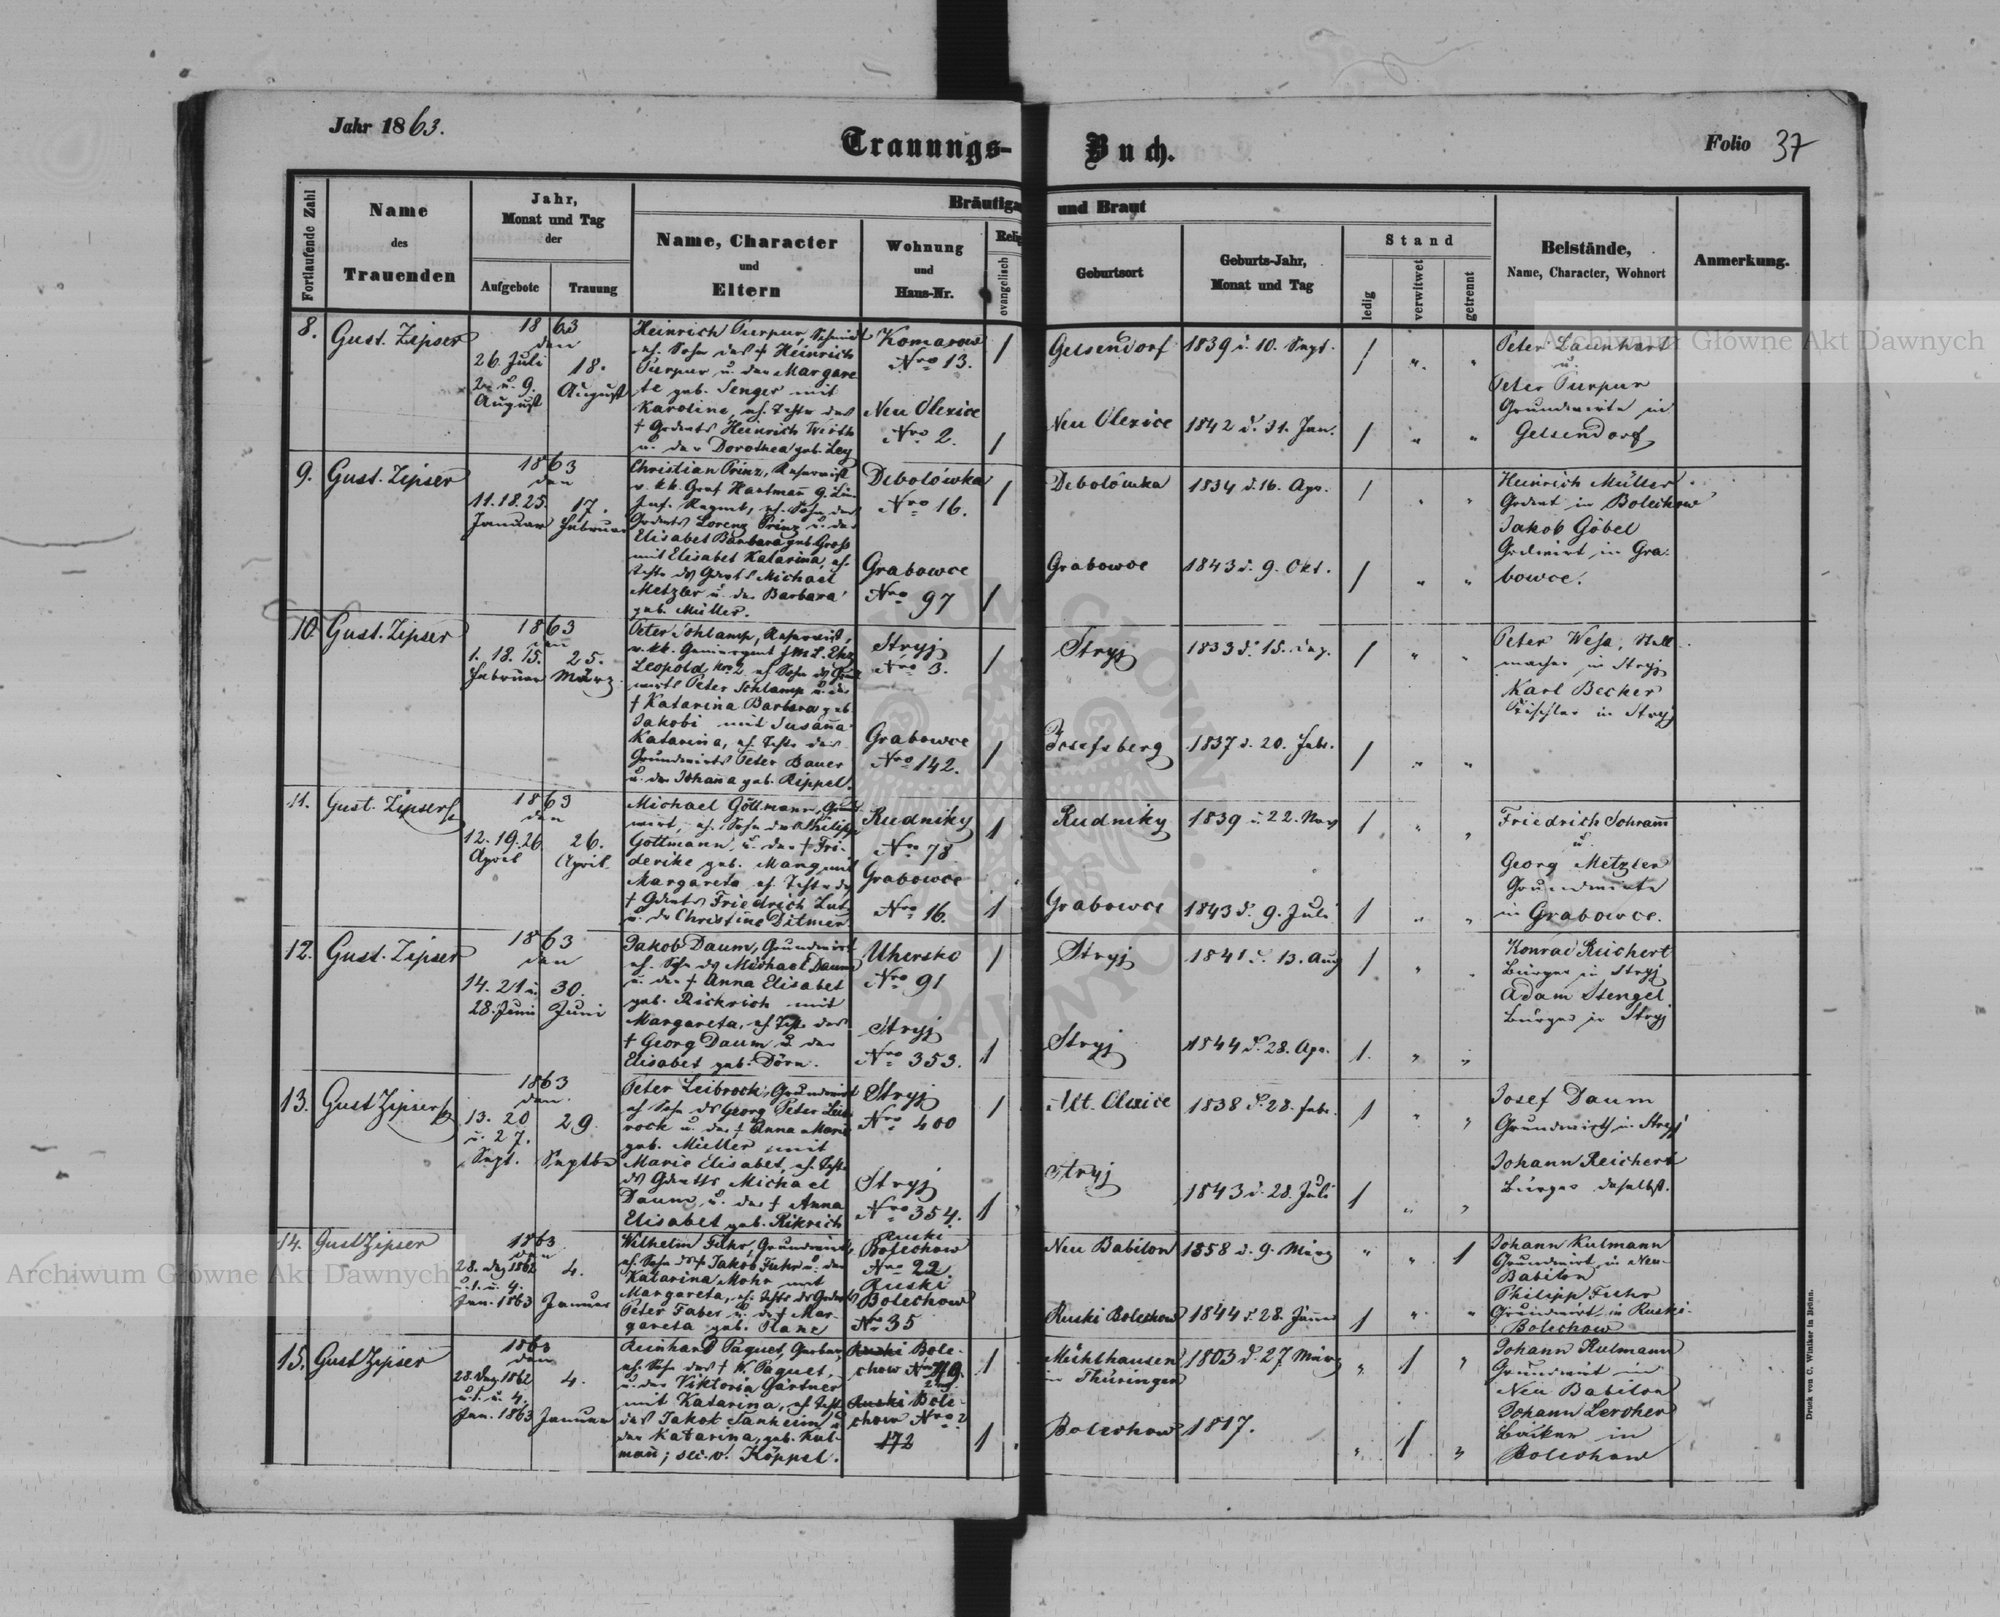 Jahr 1863.
Trauungs-Buch.
Folio 37
Fortlaufende Zahl
Name
des
Trauenden
Jahr,
Monat und Tag
der
Aufgebote
Trauung
Bräutiga
und Braut
Name, Character
und
Eltern
Wohnung
und
Haus-Nr.
Relig
evangelisch
Geburtsort
Geburts-Jahr,
Monat und Tag
Stand
ledig
verwitwet
getrennt
Beistände,
Name, Character, Wohnort
Anmerkung.
8.
Gust. Zipser
1863
den
26. Juli
2. u. 9.
August
18.
August
Heinrich Purpur, Schmied
eh. Sohn des † Heinrich
Purpur u. der Margare
te geb. Senger mit
Karoline, eh. Tochter des
† Grdwts Heinrich Wirth
u. der Dorothea geb. Ley
Komarow
Nro 13.
Neu Olexice
Nro 2.
1
1
Gelsendorf
Neu Olexice
1839 d. 10. Sept.
1842 d. 31. Jan.
1 " "
1 " "
Peter Launhart
u.
Peter Purpur
Grundwirte in
Gelsendorf
9.
Gust. Zipser
1863
den
11. 18. 25.
Januar
17.
Februar
Christian Prinz, Reservist
v. kk. Graf Hartmañ 9. Lin
Inf. Regmt, eh. Sohn des
Grdwts Lorenz Prinz u. der
Elisabet Barbara geb. Gross
mit Elisabet Katarina, eh.
Tochter des Grdwts Michael
Metzler u. der Barbara
geb. Müller.
Debolówka
Nro 16.
Grabowce
Nro 97
1
1
Debolówka
Grabowce
1834 d. 16. Apr.
1843 d. 9. Okt.
1 " "
1 " "
Heinrich Müller
Grdwt in Bolechow
Jakob Göbel
Grdwirt in Gra-
bowce.
10.
Gust. Zipser
1863
den
1. 18. 15.
Februar
25.
März
Peter Schlamp, Reservist,
Leopold, Nr. 2 eh Sohn des Grund
wirts Peter Schlamp u. der
† Katarina Barbara geb
Jakobi mit Susaña
Katarina, eh. Tochter des
Grundwirts Peter Bauer
u. der Johaña geb. Rippel.
Stryj
Nro 3.
Grabowce
Nro 142.
1
1
Stryj
Josefsberg
1833 d. 15.
1837 d. 20. Febr.
1 " "
1 " "
Peter Wesa, Stell
macher in Stryj
Karl Becker
Tischler in Stryj
11.
Gust. Zipser
1863
den
12. 19. 26
April
26.
April
Michael Göttmann, Grund
wirt, eh. Sohn des Philipp
Göttmann, u. der † Fri-
derike geb. Mang mit
Margareta eh Tochter des
† Grdwts Friedrich Lutz
u. der Christine Ditmer.
Rudniky
Nro 78
Grabowce
Nro 16.
1
1
Rudniky
Grabowce
1839 d. 22. Nov
1843 d. 9. Juli
1 " "
1 " "
Friedrich Schram̄
u.
Georg Metzler
Grundwirte
in Grabowce.
12.
Gust. Zipser
1863
den
14. 21 u.
28. Juni
30.
Juni
Jakob Daum, Grundwirt
eh. Sohn des Michael Daum
u. der † Anna Elisabet
geb. Rickrich mit
Margareta, eh Tochter des
† Georg Daum u. der
Elisabet geb. Dörn.
Uhersko
Nro 91
Stryj
Nro 353.
1
1
Stryj
Stryj
1841 d. 13. Aug
1844 d. 28. Apr.
1 " "
1 " "
Konrad Reichert
Bürger in Stryj
Adam Stengel
Bürger in Stryj
13.
Gust Zipser
1863
den
13. 20
u. 27.
Sept.
29.
Septbr
Peter Leibrock, Grundwirt
eh Sohn des Georg Peter Leib
rock u. der † Anna Marie
geb. Müller mit
Marie Elisabet, eh. Tochter
des Grdwts Michael
Daum, u. der † Anna
Elisabet geb. Rikrich
Stryj
Nro 400
Stryj
Nro 354.
1
1
Alt. Olexice
Stryj
1838 d. 28. Febr.
1843 d. 28. Juli
1 " "
1 " "
Josef Daum
Grundwirth in Stryj
Johann Reichert
Bürger daselbst.
14.
Gust Zipser
1863
den
28. Dez 1862
u. 1. u. 4.
Jan. 1863
4.
Januar
Wilhelm Fuhr, Grundwirt
eh Sohn des † Jakob Fuhr u. der
Katarina Mohr mit
Margareta, eh. Tochter des Grdwts
Peter Faber u. der † Mar-
gareta geb. Plane
Ruski
Bolechow
Nro 22
Ruski
Bolechow
Nro 35
Neu Babilon
Ruski Bolechow
1858 d. 9. März
1844 d. 28. Jänner
" " 1
1 " "
Johann Kulmann
Grundwirt in Neu-
Babilon
Philipp Fuhr
Grundwirt in Ruski-
Bolechow
15.
Gust Zipser
1863
den
28. Dez 1862
u. 1. u. 4.
Jan. 1863
4.
Januar
Reinhard Paquet, Gerber,
eh. Sohn des † W. Paquet,
u. der Viktoria Gärtner
mit Katarina, eh. Tochter
des Jakob Sanheim, u
der Katarina, geb. Kul-
mañ; sec. v. Köppel.
Ruski Bole-
chow Nro
Ruski Bole-
chow Nro
172
1
1
Mühlhausen
in Thüringen
Bolechow
1803 d. 27 März
1817.
" 1 "
" 1 "
Johann Kulmann
Grundwirt in
Neu Babilon
Johann Lercher
Bäcker in
Bolechow
Druck von C. Winiker in Brünn.
Archiwum Główne Akt Dawnych
Archiwum Główne Akt Dawnych